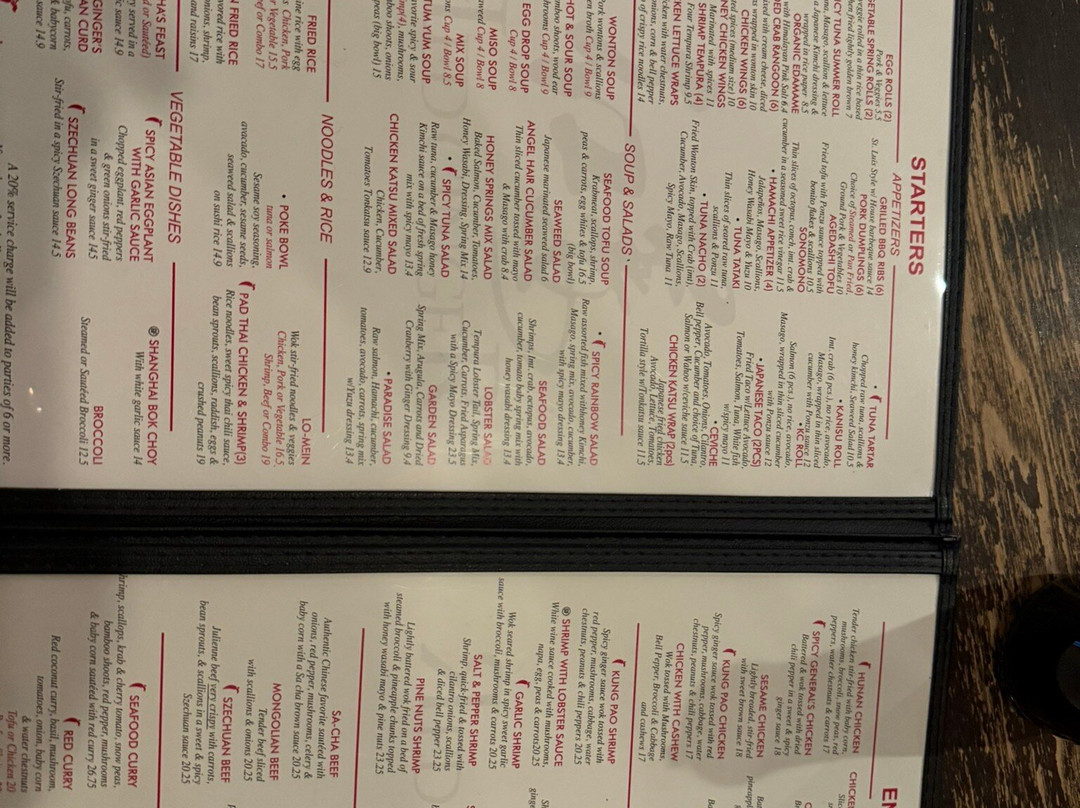 STARTERS
APPETIZERS
EGG ROLLS (2)
Pork & Veggies 5.5
GETABLE SPRING ROLLS (2)
veggie rolled in a thin rice based
then fried lightly golden brown 7
ICY TUNA SUMMER ROLL
una, Masago, scallion & lettuce
a Japanese Kimchi dressing &
wrapped in rice paper 8.5
ORGANIC EDAMAME
with Himalayan Pink Salt 6.4
NED CRAB RANGOON (6)
ixed with cream cheese, diced
ns wrapped in wonton skin 10
CHICKEN WINGS (6)
ted spices (medium size) 10
NEY CHICKEN WINGS
Marinated with spices 11
SHRIMP TEMPURA (4)
Four Tempura Shrimp 9.5
KEN LETTUCE WRAPS
icken with water chestnuts,
onions, corn & bell pepper
of crispy rice noodles 14
GRILLED BBQ RIBS (6)
St. Luis Style w House barbeque sauce 14
PORK DUMPLINGS (6)
Choice of Steamed or Pan Fried,
Ground Pork & Vegetables 10
AGEDASHI TOFU
Fried tofu with Ponzu sauce topped with
bonito flakes & scallions 10.5
SONOMONO
Thin slices of octopus, conch, imt. crab &
cucumber in a seasoned sweet rice vinegar 11.5
• HAMACHI APPETIZER (4)
Jalapeños, Masago, Scallions,
Honey Wasabi Mayo & Yuzu 10
• TUNA TATAKI
Thin slices of seared raw tuna,
scallions & Ponzu 11
• TUNA NACHO (2)
Fried Wonton Skin, topped with Crab (imt),
Cucumber, Avocado, Masago, Scallions,
Spicy Mayo, Raw Tuna 11
• TUNA TARTAR
Chopped raw tuna, scallions &
honey kimchi, Seaweed Salad 10.5
• KANISU ROLL
Imt. crab (6 pcs.), no rice, avocado,
Masago, wrapped in thin sliced
cucumber with Ponzu sauce 12
• KC ROLL
Salmon (6 pcs.), no rice, avocado,
Masago, wrapped in thin sliced cucumber
with Ponzu sauce 12
• JAPANESE TACO (2PCS)
Fried Taco w/Lettuce Avocado,
Tomatoes, Salmon, Tuna, White fish
w/spicy mayo 11
• CEVICHE
Avocado, Tomatoes, Onions, Cilantro,
Bell pepper, Cucumber and choice of Tuna,
Salmon or Wahoo w/ceviche sauce 11.5
CHICKEN KATSU WRAP (2pcs)
Japanese Fried Chicken
Avocado Lettuce, Tomatoes,
Tortilla style w/Tonkatsu sauce 11.5
SOUP & SALADS
WONTON SOUP
Pork wontons & scallions
en broth Cup 4 / Bowl 9
HOT & SOUR SOUP
amboo shoots, wood ear
shrooms Cup 4 / Bowl 9
EGG DROP SOUP
Cup 4 / Bowl 8
MISO SOUP
aweed Cup 4 / Bowl 8
MIX SOUP
ons Cup 4 / Bowl 8.5
TUM YUM SOUP
avorite spicy & sour
mushrooms,
boo shoots, onions
peas (big bowl) 15
SEAFOOD TOFU SOUP
Krabmeat, scallops, shrimp,
peas & carrots, egg whites & tofu 16.5
(big bowl)
SEAWEED SALAD
Japanese marinated seaweed salad 6
ANGEL HAIR CUCUMBER SALAD
Thin sliced cucumber tossed with mayo
& Masago with crab 8.4
HONEY SPRINGS MIX SALAD
Baked Salmon, Cucumber, Tomatoes,
Honey Wasabi, Dressing, Spring Mix 14
• SPICY TUNA SALAD
Raw tuna, cucumber & Masago honey
Kimchi sauce on a bed of fresh spring
mix with spicy mayo 13.4
CHICKEN KATSU MIXED SALAD
Chicken, Cucumber,
Tomatoes Tonkatsu sauce 12.9
• SPICY RAINBOW SALAD
Raw assorted fish mixed withhoney Kimchi,
Masago, spring mix, avocado, cucumber,
with spicy mayo dressing 13.4
SEAFOOD SALAD
Shrimps, Imt. crab, octopus, avocado,
cucumber, tomato baby spring mix with
honey wasabi dressing 13.4
LOBSTER SALAG
Tempura Lobster Tail, Spring Mix,
Cucumber, Carrots, Fried Asparagus
with a Spicy Mayo Dressing 23.5
GARDEN SALAD
Spring Mix, Arugula, Carrots and Dried
Cranberry with Ginger Dressing 9.4
• PARADISE SALAD
Raw salmon, Hamachi, cucumber,
tomatoes, avocado, carrots, spring mix
w/Yuzu dressing 13.4
NOODLES & RICE
FRIED RICE
ine rice with egg
s Chicken, Pork
r Vegetable 15.5
Beef or Combo 17
N FRIED RICE
vored rice with
onions, shrimp,
and raisins 17
• POKE BOWL
tuna or salmon
Sesame soy seasoning,
avocado, cucumber, sesame seeds,
seaweed salad & scallions
on sushi rice 14.9
LO-MEIN
Wok stir-fried noodles & veggies
Chicken, Pork or Vegetable 16.5,
Shrimp, Beef or Combo 19
PAD THAI CHICKEN & SHRIMP(3)
Rice noodles, sweet spicy thai chili sauce,
bean sprouts, scallions, raddish, eggs &
crushed peanuts 19
VEGETABLE DISHES
HA'S FEAST
d or Sautéed)
ry served in a
ic sauce 14.9
GINGER'S
AN CURD
fu, carrots,
& babycorn
sauce 14.9
SPICY ASIAN EGGPLANT
WITH GARLIC SAUCE
Chopped eggplant, red peppers
& green onions stir-fried
in a sweet ginger sauce 14.5
SZECHUAN LONG BEANS
Stir-fried in a spicy Szechuan sauce 14.5
® SHANGHAI BOK CHOY
With white garlic sauce 14
BROCCOLI
Steamed or Sautéed Broccoli 12.5
A 20% service charge will be added to parties of 6 or more.
EN
HUNAN CHICKEN
Tender chicken stir-fried with baby corn,
mushrooms, broccoli, snow peas, red
peppers, water chestnuts & carrots 17
SPICY GENERAL'S CHICKEN
Battered & wok tossed with dried
chili pepper in a sweet & spicy
ginger sauce 18
SESAME CHICKEN
Lightly breaded, stir-fried
with sweet brown sauce 18
KUNG PAO CHICKEN
Spicy ginger sauce wok tossed with red
pepper, mushrooms, cabbage, water
chestnuts, peanuts & chili peppers 17
CHICKEN WITH CASHEW
Wok tossed with Mushrooms,
Bell Pepper, Broccoli & Cabbage
and cashews 17
KUNG PAO SHRIMP
Spicy ginger sauce wok tossed with
red pepper, mushrooms, cabbage, water
chestnuts, peanuts & chili peppers 20.25
® SHRIMP WITH LOBSTER SAUCE
White wine sauce cooked with mushrooms,
napa, egg, peas & carrots20.25
GARLIC SHRIMP
Wok seared shrimp in spicy sweet garlic
sauce with broccoli, mushrooms & carrots 20.25
SALT & PEPPER SHRIMP
Shrimp, quick-fried & tossed with
cilantro onions, scallions
& diced bell pepper 23.25
PINE NUTS SHRIMP
Lightly battered wok fried on a bed of
steamed broccoli & pineapple chunks topped
with honey wasabi mayo & pine nuts 23.25
SA-CHA BEEF
Authentic Chinese favorite sautéed with
onions, red pepper, mushrooms, celery &
baby corn with a Sa cha brown sauce 20.25
MONGOLIAN BEEF
Tender beef sliced
with scallions & onions 20.25
SZECHUAN BEEF
Julienne beef very crispy with carrots,
bean sprouts, & scallions in a sweet & spicy
Szechuan sauce 20.25
SEAFOOD CURRY
hrimp, scallops, krab & cherry tomato, snow peas,
bamboo shoots, red pepper, mushrooms
& baby corn sautéed with red curry 26.75
RED CURRY
Red coconut curry, basil, mushroom,
tomatoes, onion, baby corn
& water chestnuts
Tofu or Chicken 20
CHICKEN